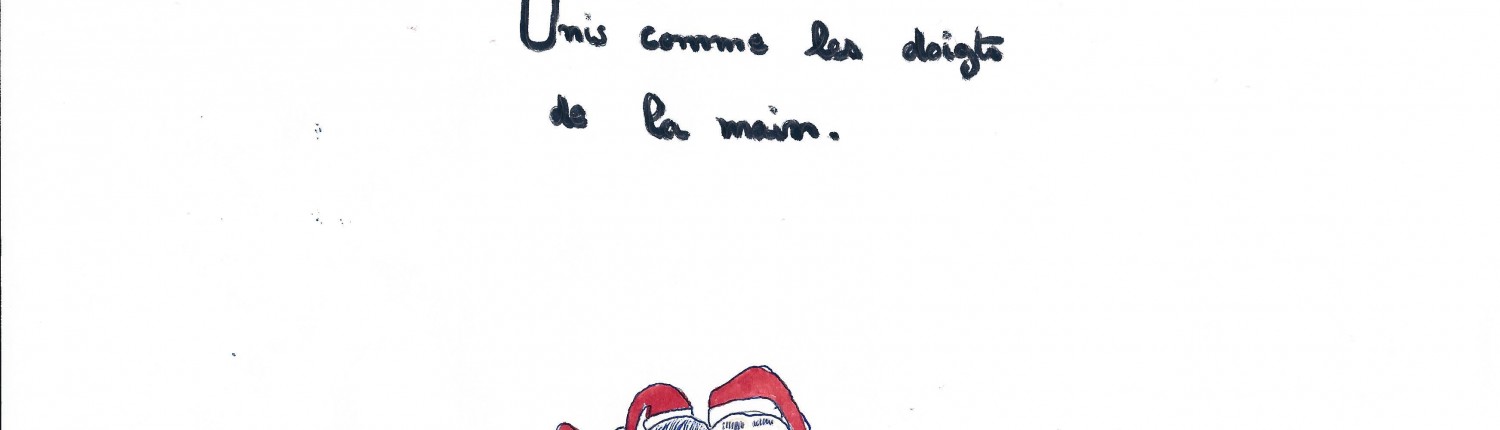 Unis comme les doigts
de la main.